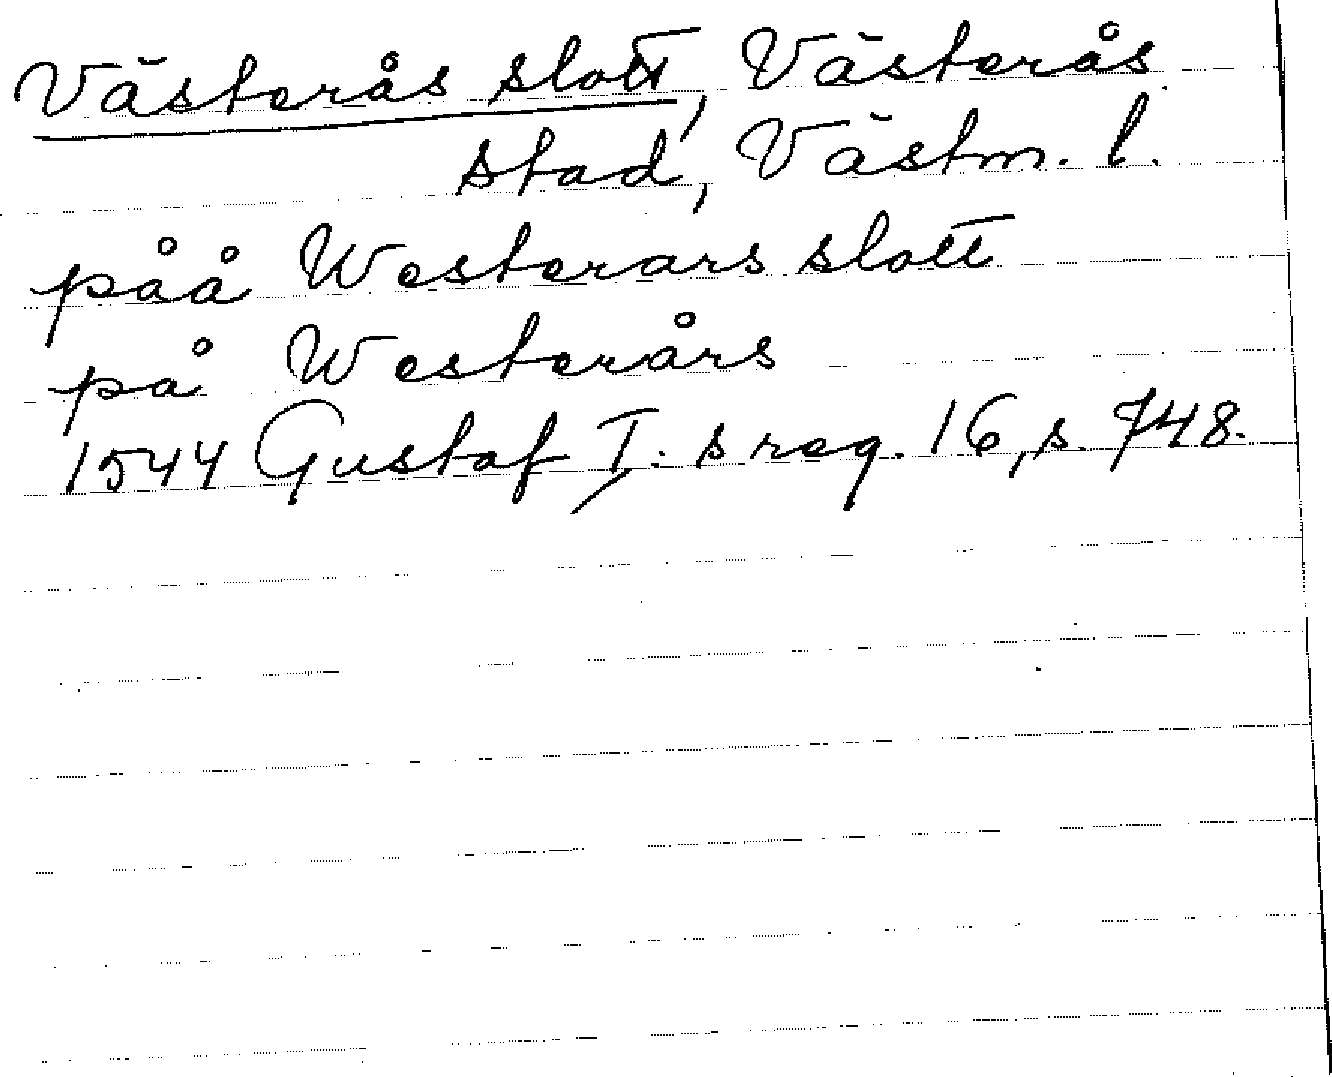 Västerås slott, Västerås
stad, Västm. l.
påå Westerars slott
på Westerårs
1544 Gustaf I. s reg. 16, s. 748.